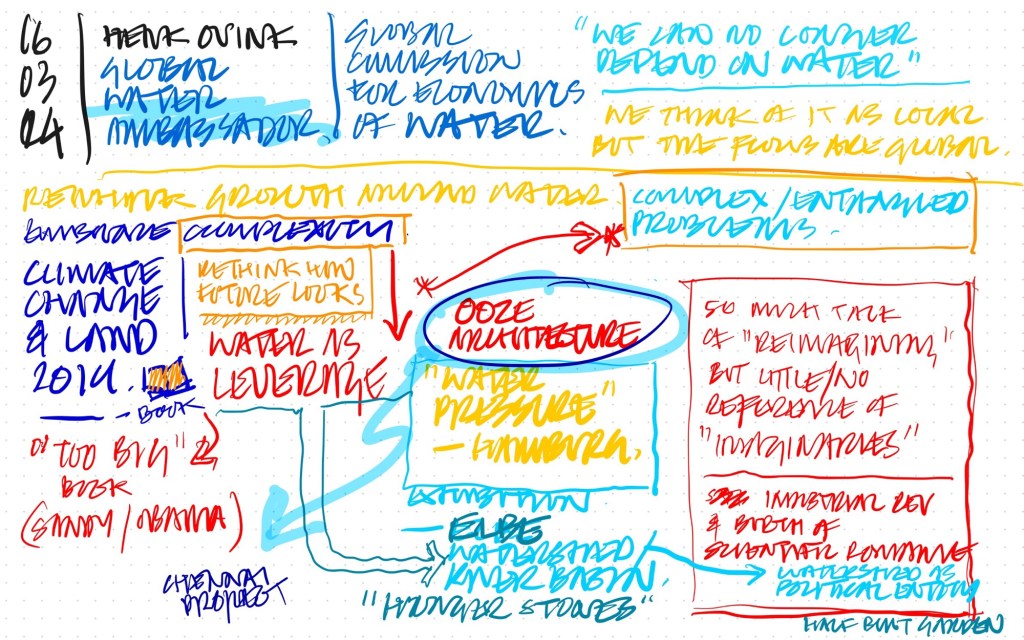 16
03
24
HENK OVINK
GLOBAL
WATER
AMBASSADOR.
GLOBAL
COMMISSION
FOR ECONOMICS
OF WATER.
"WE CAN NO LONGER
DEPEND ON WATER"
WE THINK OF IT AS LOCAL
BUT THE FLOWS ARE GLOBAL.
GROWTH AROUND WATER
COMPLEX / ENTANGLED
PROBLEMS.
EMBRACE COMPLEXITY
CLIMATE
CHANGE
& LAND
2019.
BOOK
RETHINK HOW
FUTURE LOOKS
WATER AS
LEVERAGE
"TOO BIG"
BOOK
(SANDY / OBAMA)
CHENNAI
PROJECT
OOZE
ARCHITECTURE
"WATER
PRESSURE"
— HAMBURG.
EXHIBITION
— ELBE
WATERSHED /
RIVER BASIN.
"HUNGER STONES"
SO MUCH TALK
OF "REIMAGINING"
BUT LITTLE/NO
REFERENCE OF
"IMAGINARIES"
INDUSTRIAL REV
& BIRTH OF
SCIENTIFIC ROMANCE
WATERSHED AS
POLITICAL ENTITY
HALF BUILT GARDEN